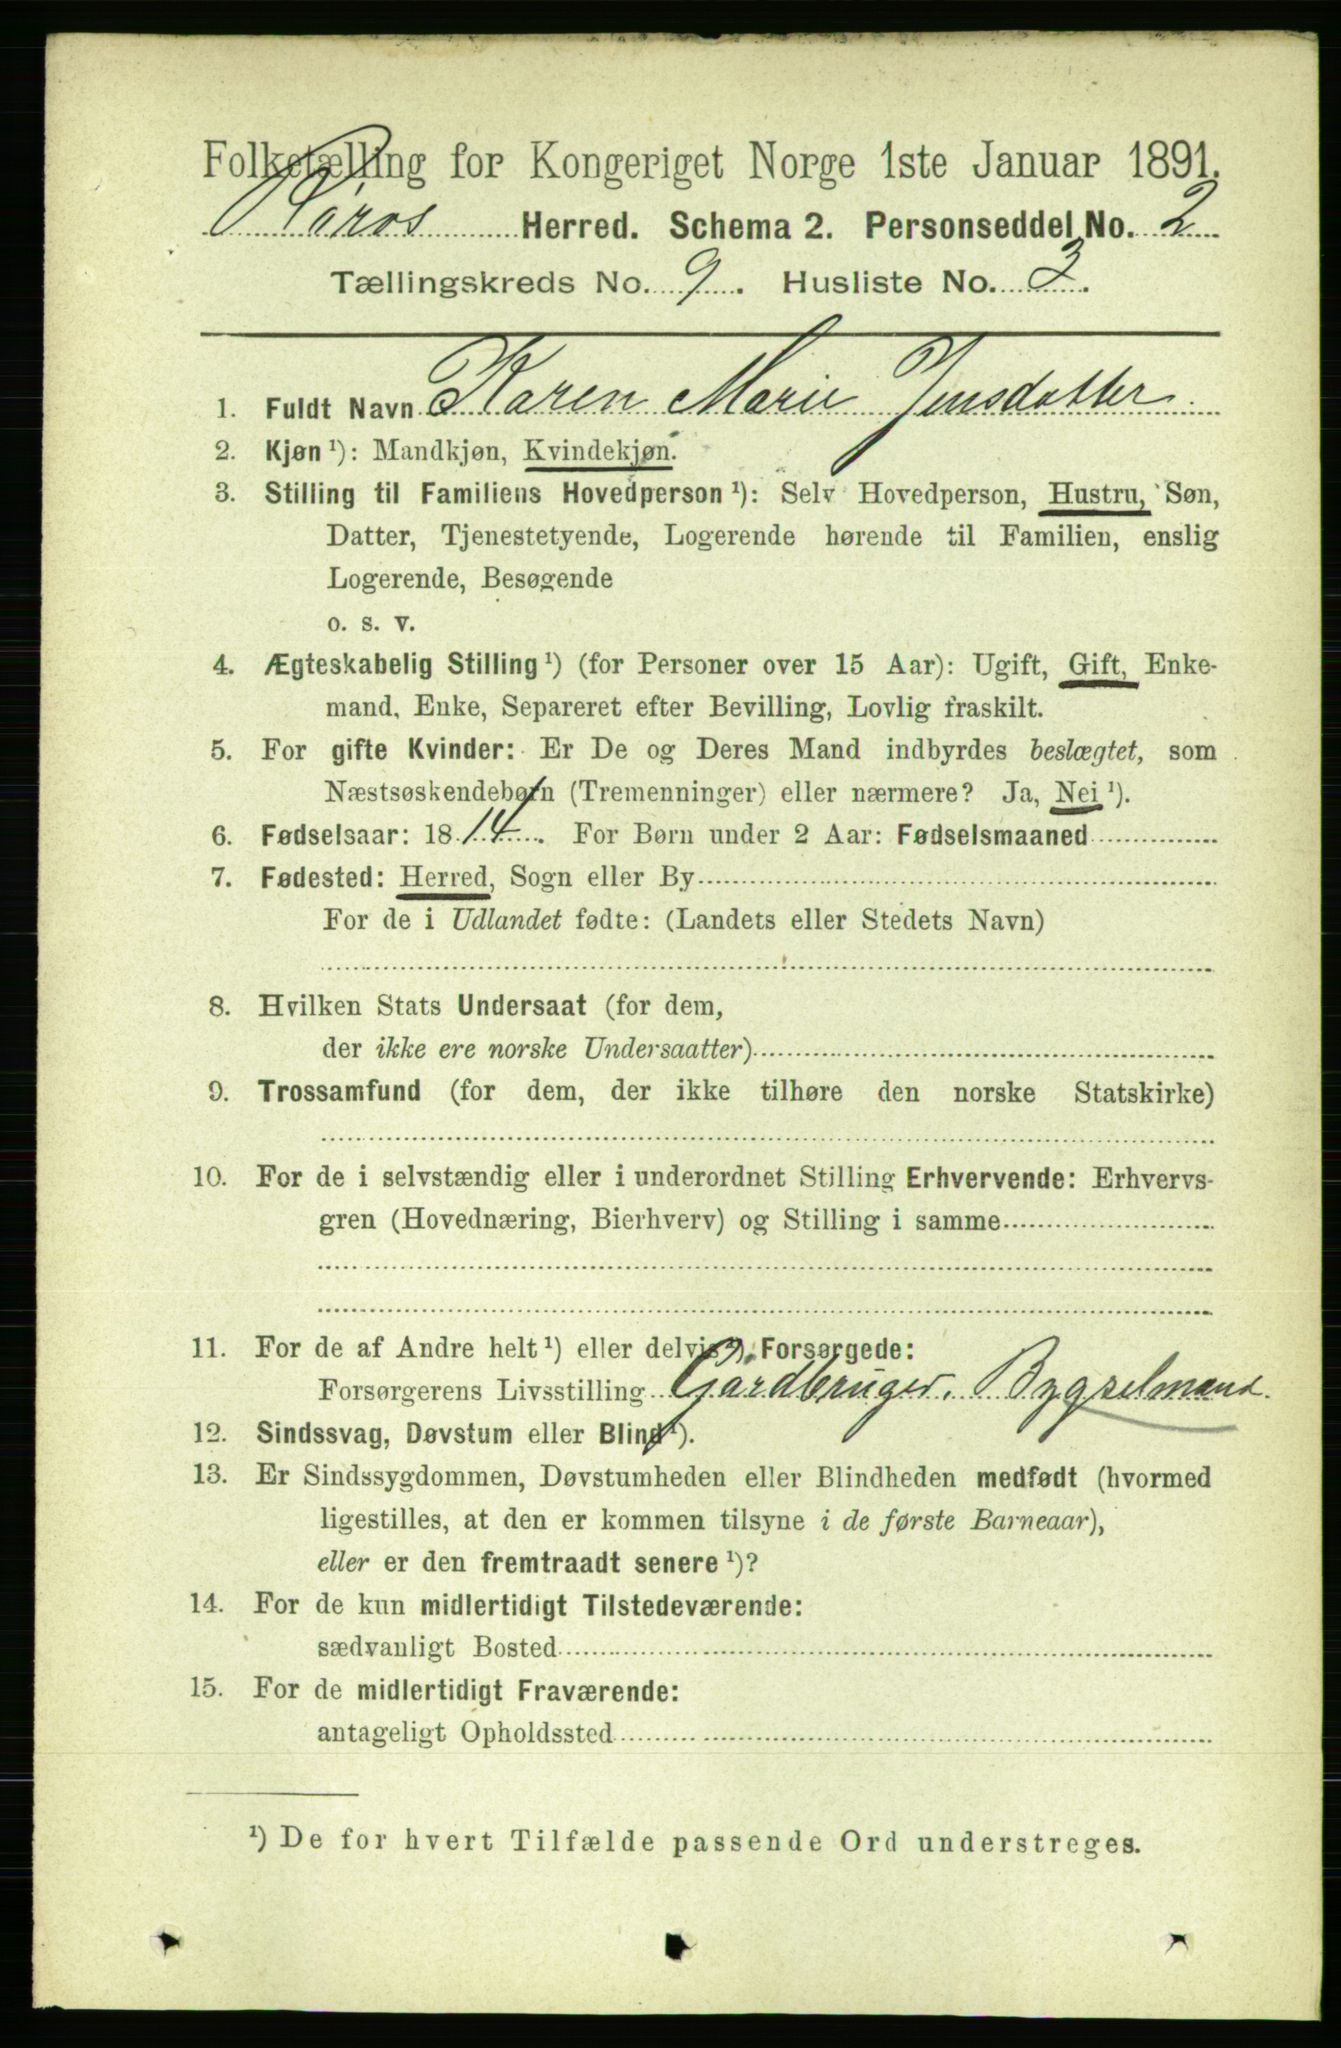 Folketælling for Kongeriget Norge 1ste Januar 1891.
Røros Herred. Schema 2. Personseddel No. 2
Tællingskreds No. 9. Husliste No. 3.
1. Fuldt Navn Karen Marie Jensdatter
2. Kjøn ¹): Mandkjøn, Kvindekjøn.
3. Stilling til Familiens Hovedperson ¹): Selv Hovedperson, Hustru, Søn,
Datter, Tjenestetyende, Logerende hørende til Familien, enslig
Logerende, Besøgende
o. s. v.
4. Ægteskabelig Stilling ¹) (for Personer over 15 Aar): Ugift, Gift, Enke-
mand, Enke, Separeret efter Bevilling, Lovlig fraskilt.
5. For gifte Kvinder: Er De og Deres Mand indbyrdes beslægtet, som
Næstsøskendebørn (Tremenninger) eller nærmere? Ja, Nei ¹).
6. Fødselsaar: 1814. For Børn under 2 Aar: Fødselsmaaned
7. Fødested: Herred, Sogn eller By
For de i Udlandet fødte: (Landets eller Stedets Navn)
8. Hvilken Stats Undersaat (for dem,
der ikke ere norske Undersaatter)
9. Trossamfund (for dem, der ikke tilhøre den norske Statskirke)
10. For de i selvstændig eller i underordnet Stilling Erhvervende: Erhvervs-
gren (Hovednæring, Bierhverv) og Stilling i samme
11. For de af Andre helt ¹) eller delvis ¹) Forsørgede:
Forsørgerens Livsstilling Gårdbruger. Bygselmand.
12. Sindssvag, Døvstum eller Blind ¹).
13. Er Sindssygdommen, Døvstumheden eller Blindheden medfødt (hvormed
ligestilles, at den er kommen tilsyne i de første Barneaar),
eller er den fremtraadt senere ¹)?
14. For de kun midlertidigt Tilstedeværende:
sædvanligt Bosted
15. For de midlertidigt Fraværende:
antageligt Opholdssted
¹) De for hvert Tilfælde passende Ord understreges.